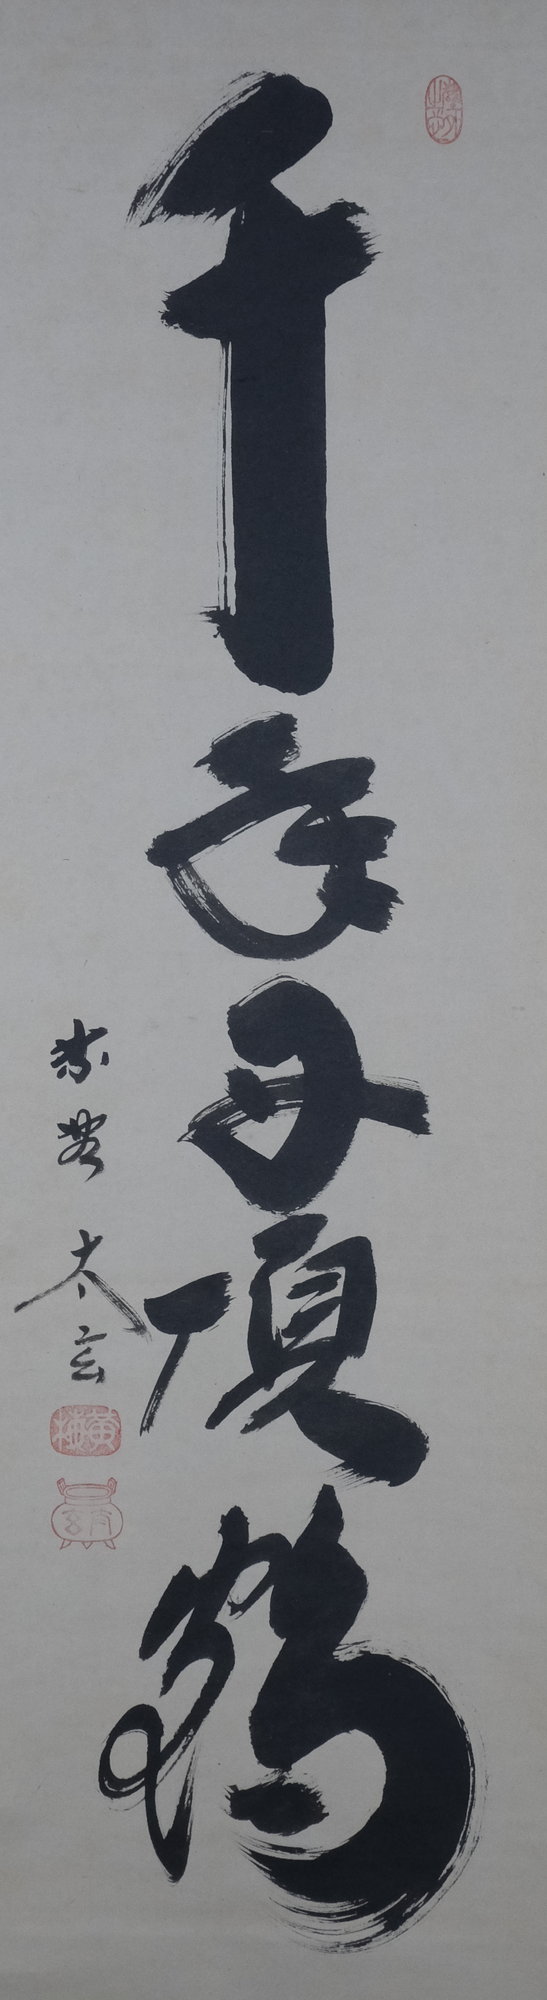 千年丹頂鶴
紫野太玄